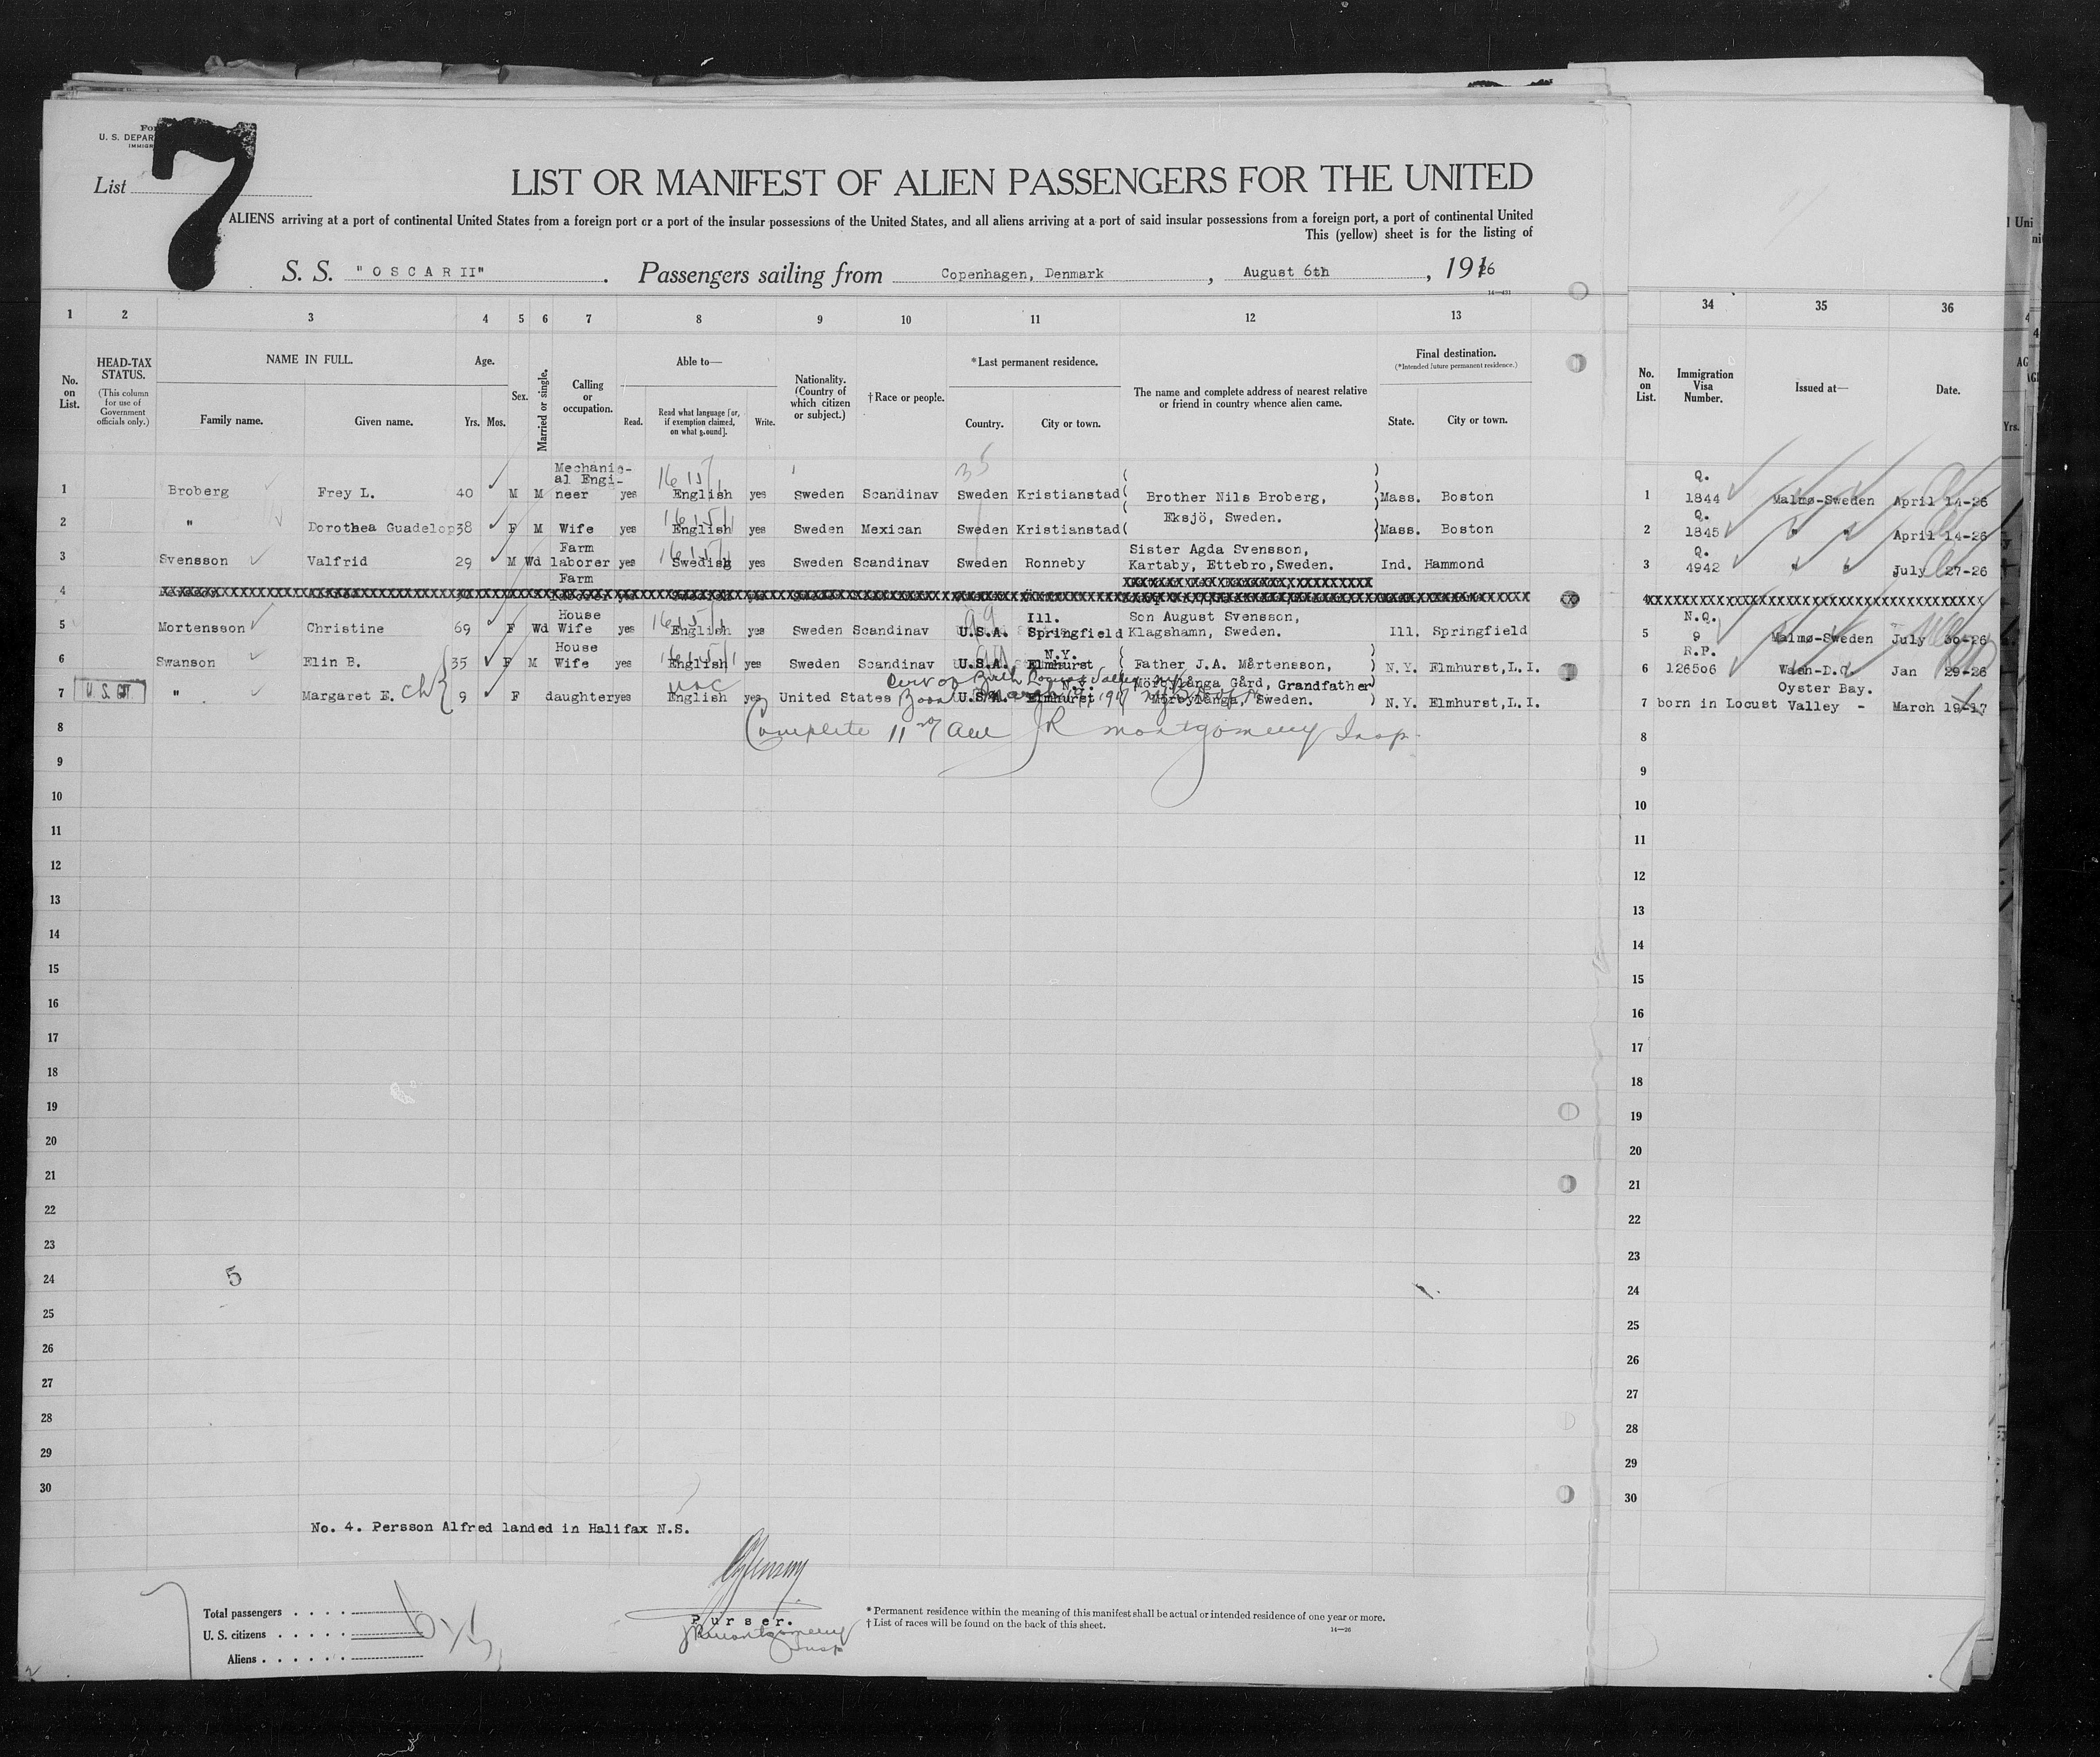 7
List
LIST OR MANIFEST OF ALIEN PASSENGERS FOR THE UNITED
ALIENS arriving at a port of continental United States from a foreign port or a port of the insular possessions of the United States, and all aliens arriving at a port of said insular possessions from a foreign port, a port of continental United
This (yellow) sheet is for the listing of
S. S. "OSCAR II". Passengers sailing from Copenhagen, Denmark, August 6th, 1926
1 2 3 4 5 6 7 8 9 10 11 12 13 34 35 36
No. on List.
HEAD-TAX STATUS.
(This column for use of Government officials only.)
NAME IN FULL.
Family name. Given name.
Age.
Yrs. Mos.
Sex.
Married or single.
Calling or occupation.
Able to—
Read. Read what language [or, if exemption claimed, on what ground]. Write.
Nationality. (Country of which citizen or subject.)
† Race or people.
*Last permanent residence.
Country. City or town.
The name and complete address of nearest relative or friend in country whence alien came.
Final destination.
(*Intended future permanent residence.)
State. City or town.
No. on List.
Immigration Visa Number.
Issued at—
Date.
1 Broberg Frey L. 40 M M Mechanical Engineer yes English yes Sweden Scandinav Sweden Kristianstad Brother Nils Broberg, Mass. Boston 1 Q. 1844 Malmø-Sweden April 14-26
2 " Dorothea Guadelop 38 F M Wife yes English yes Sweden Mexican Sweden Kristianstad Eksjö, Sweden. Mass. Boston 2 Q. 1845 " " April 14-26
3 Svensson Valfrid 29 M Wd Farm laborer yes Swedish yes Sweden Scandinav Sweden Ronneby Sister Agda Svensson, Kartaby, Ettebro, Sweden. Ind. Hammond 3 Q. 4942 " " July 27-26
4 Farm
5 Mortensson Christine 69 F Wd House Wife yes English yes Sweden Scandinav U.S.A. Ill. Springfield Son August Svensson, Klagshamn, Sweden. Ill. Springfield 5 N.Q. 9 Malmø-Sweden July 30-26
6 Swanson Elin B. 35 F M House Wife yes English yes Sweden Scandinav U.S.A. N.Y. Elmhurst Father J.A. Mårtensson, N.Y. Elmhurst, L.I. 6 R.P. 126506 Wash-D.C. Jan 29-26
7 U. S. CIT " Margaret E. Ch 9 F daughter yes English yes United States U.S.A. N.Y. Elmhurst Mörbylånga Gård, Grandfather Mörbylånga, Sweden. N.Y. Elmhurst, L.I. 7 born in Locust Valley - Oyster Bay. March 19-17
Complete JR Montgomery Insp.
8 8
9 9
10 10
11 11
12 12
13 13
14 14
15 15
16 16
17 17
18 18
19 19
20 20
21 21
22 22
23 23
24 5 24
25 25
26 26
27 27
28 28
29 29
30 30
No. 4. Persson Alfred landed in Halifax N.S.
Purser.
JR Montgomery
Insp
Total passengers
U. S. citizens
Aliens
* Permanent residence within the meaning of this manifest shall be actual or intended residence of one year or more.
† List of races will be found on the back of this sheet.
14—26